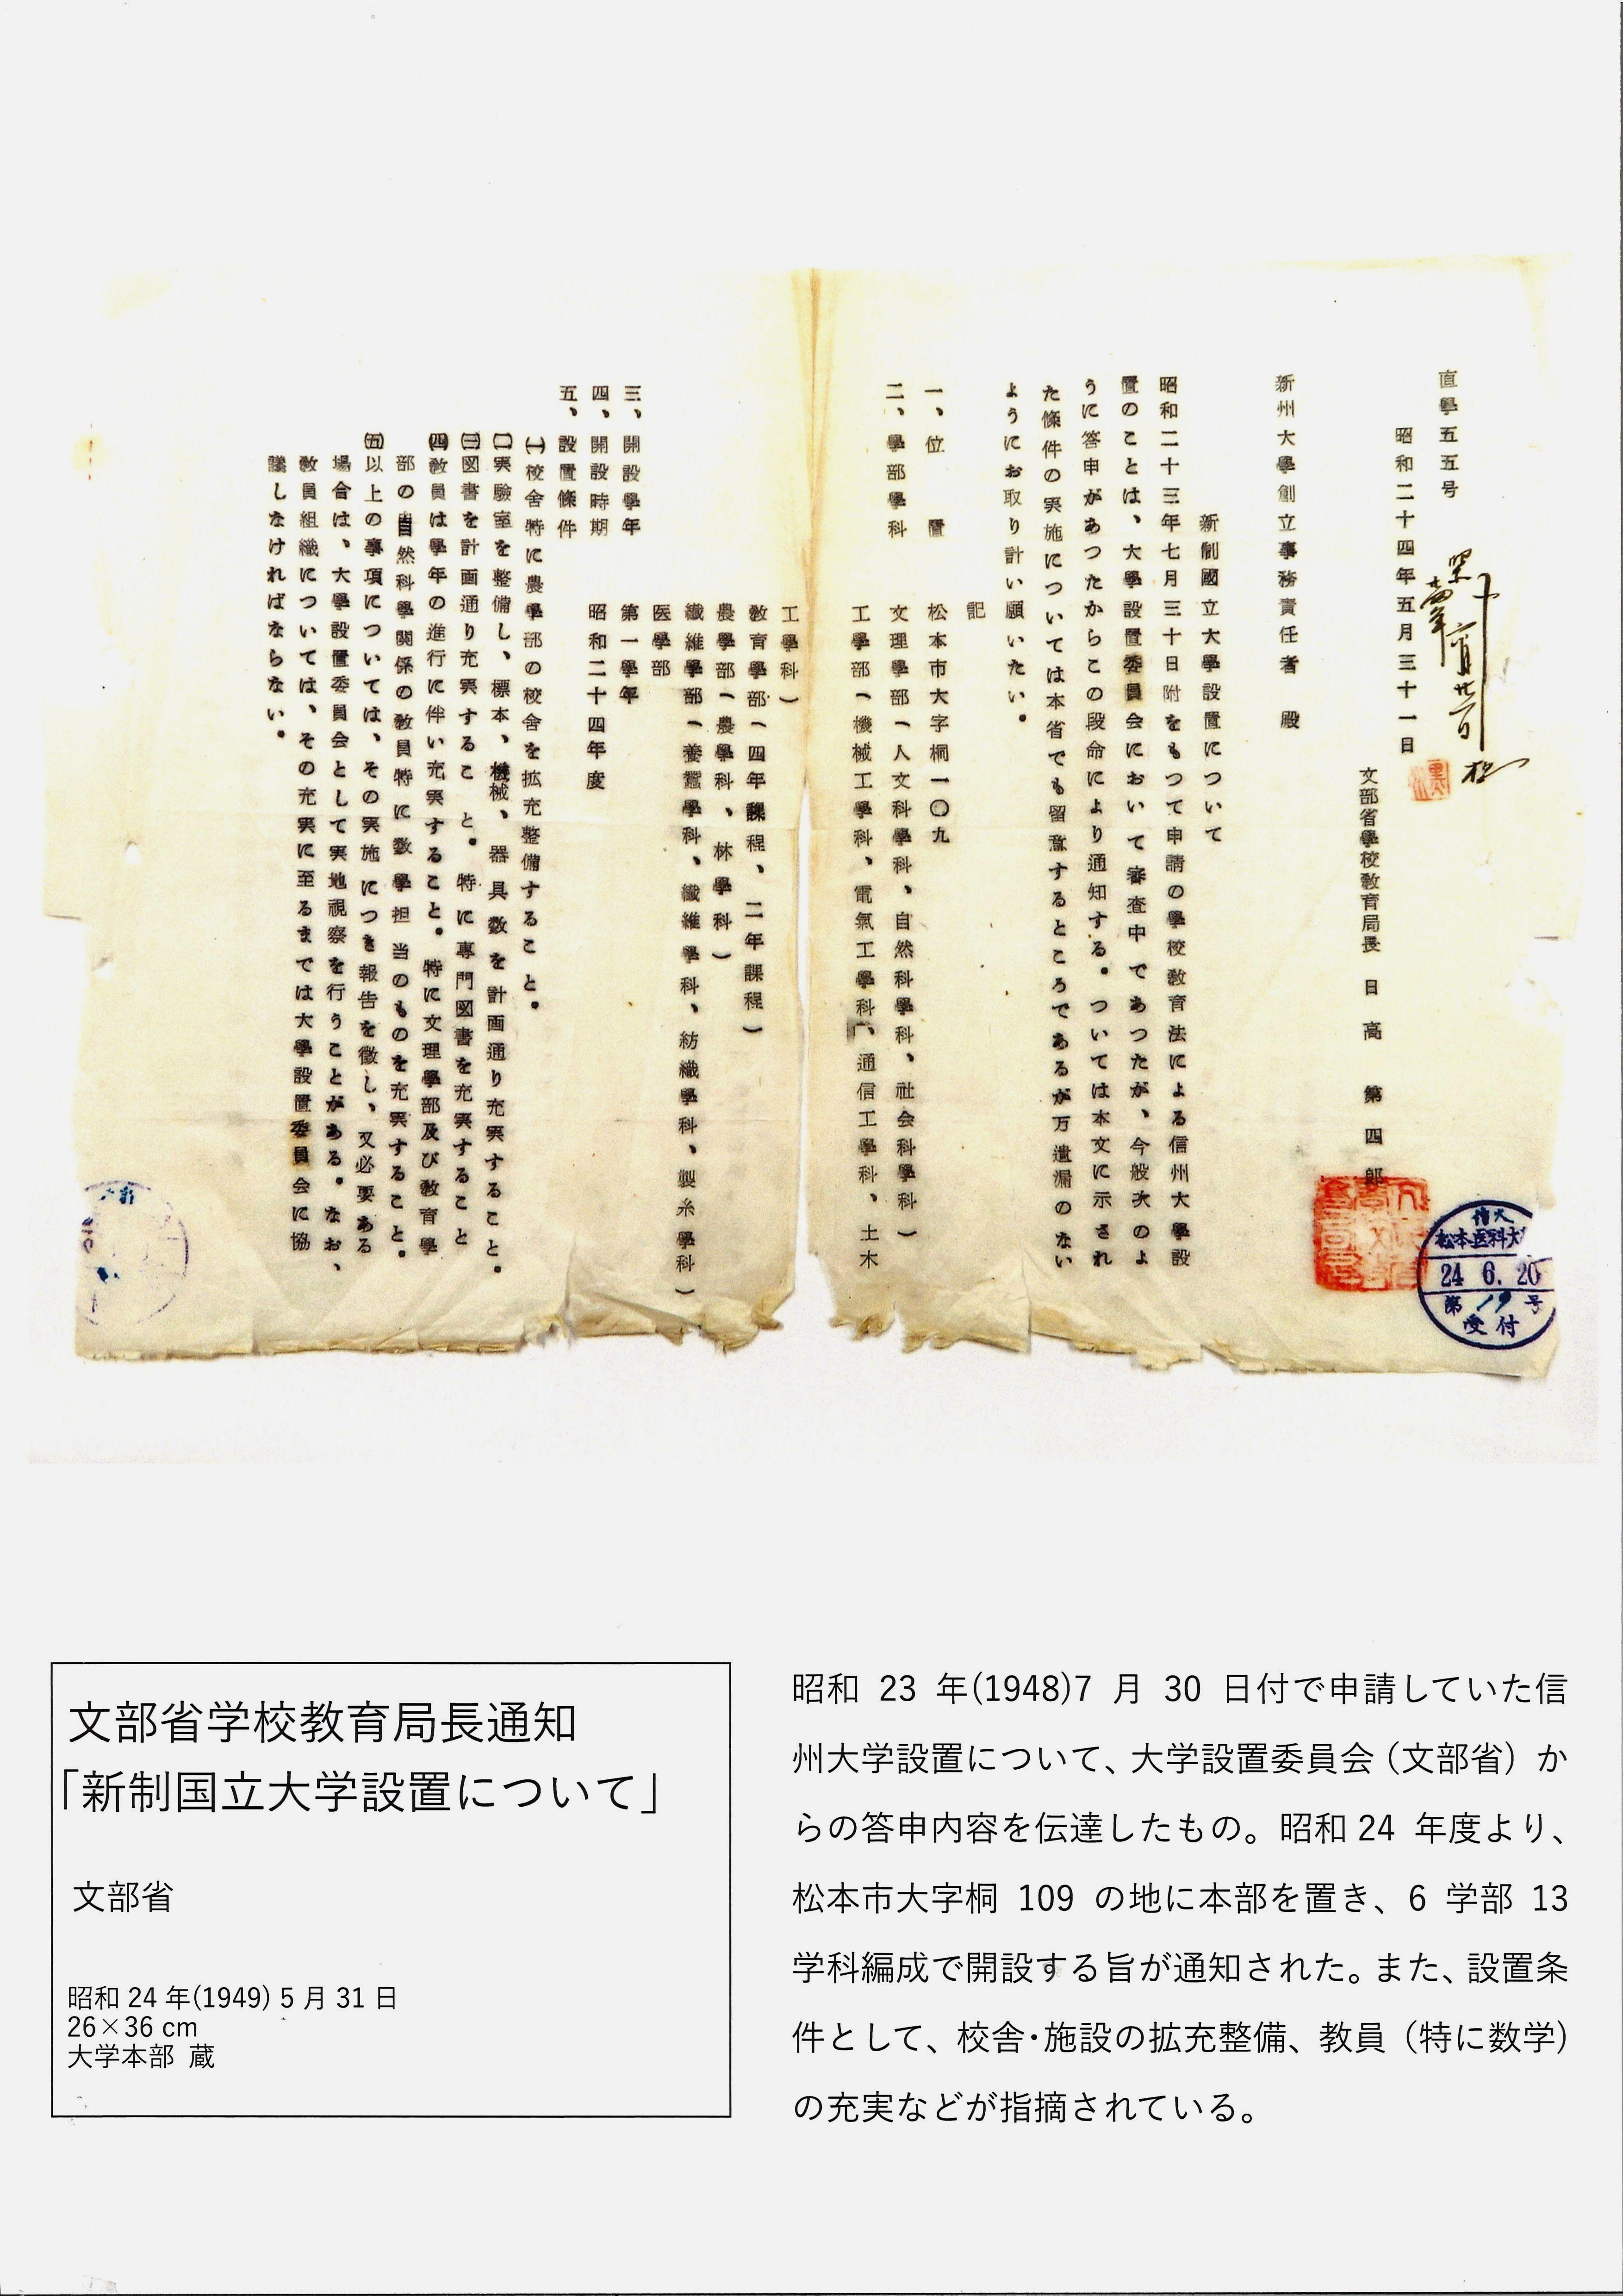 直學五五号
昭和二十四年五月三十一日
文部省學校教育局長 日高 第四郎
新州大學創立事務責任者 殿
新制國立大學設置について
昭和二十三年七月三十日附をもつて申請の學校教育法による信州大學設
置のことは、大學設置委員会において審査中であつたが、今般次のよ
うに答申があつたからこの段命により通知する。ついては本文に示され
た條件の実施については本省でも留意するところであるが万遺漏のない
ようにお取り計い願いたい。
記
一、位 置 松本市大字桐一〇九
二、學部學科 文理學部(人文科學科、自然科學科、社会科學科)
工學部(機械工學科、電氣工學科、通信工學科、土木
工學科)
教育學部(四年課程、二年課程)
農學部(農學科、林學科)
繊維學部(養蠶學科、繊維學科、紡織學科、製糸學科)
医學部
三、開設學年 第一學年
四、開設時期 昭和二十四年度
五、設置條件
(一)校舎特に農學部の校舎を拡充整備すること。
(二)実驗室を整備し、標本、機械、器具数を計画通り充実すること。
(三)図書を計画通り充実すること。特に専門図書を充実すること
(四)教員は學年の進行に伴い充実すること。特に文理學部及び教育學
部の自然科學関係の教員特に数學担当のものを充実すること。
(五)以上の事項については、その実施につき報告を徴し、又必要ある
場合は、大學設置委員会として実地視察を行うことがある。なお、
教員組織については、その充実に至るまでは大學設置委員会に協
議しなければならない。
信大
松本医科大
24 6. 20
第 19 号
受付
文部省学校教育局長通知
「新制国立大学設置について」
文部省
昭和 24 年(1949) 5 月 31 日
26×36 cm
大学本部 蔵
昭和 23 年(1948)7 月 30 日付で申請していた信
州大学設置について、大学設置委員会（文部省）か
らの答申内容を伝達したもの。昭和 24 年度より、
松本市大字桐 109 の地に本部を置き、6 学部 13
学科編成で開設する旨が通知された。また、設置条
件として、校舎・施設の拡充整備、教員（特に数学）
の充実などが指摘されている。